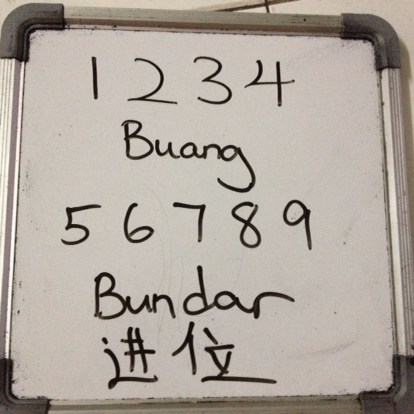 1 2 3 4
Buang
5 6 7 8 9
Bundar
进位